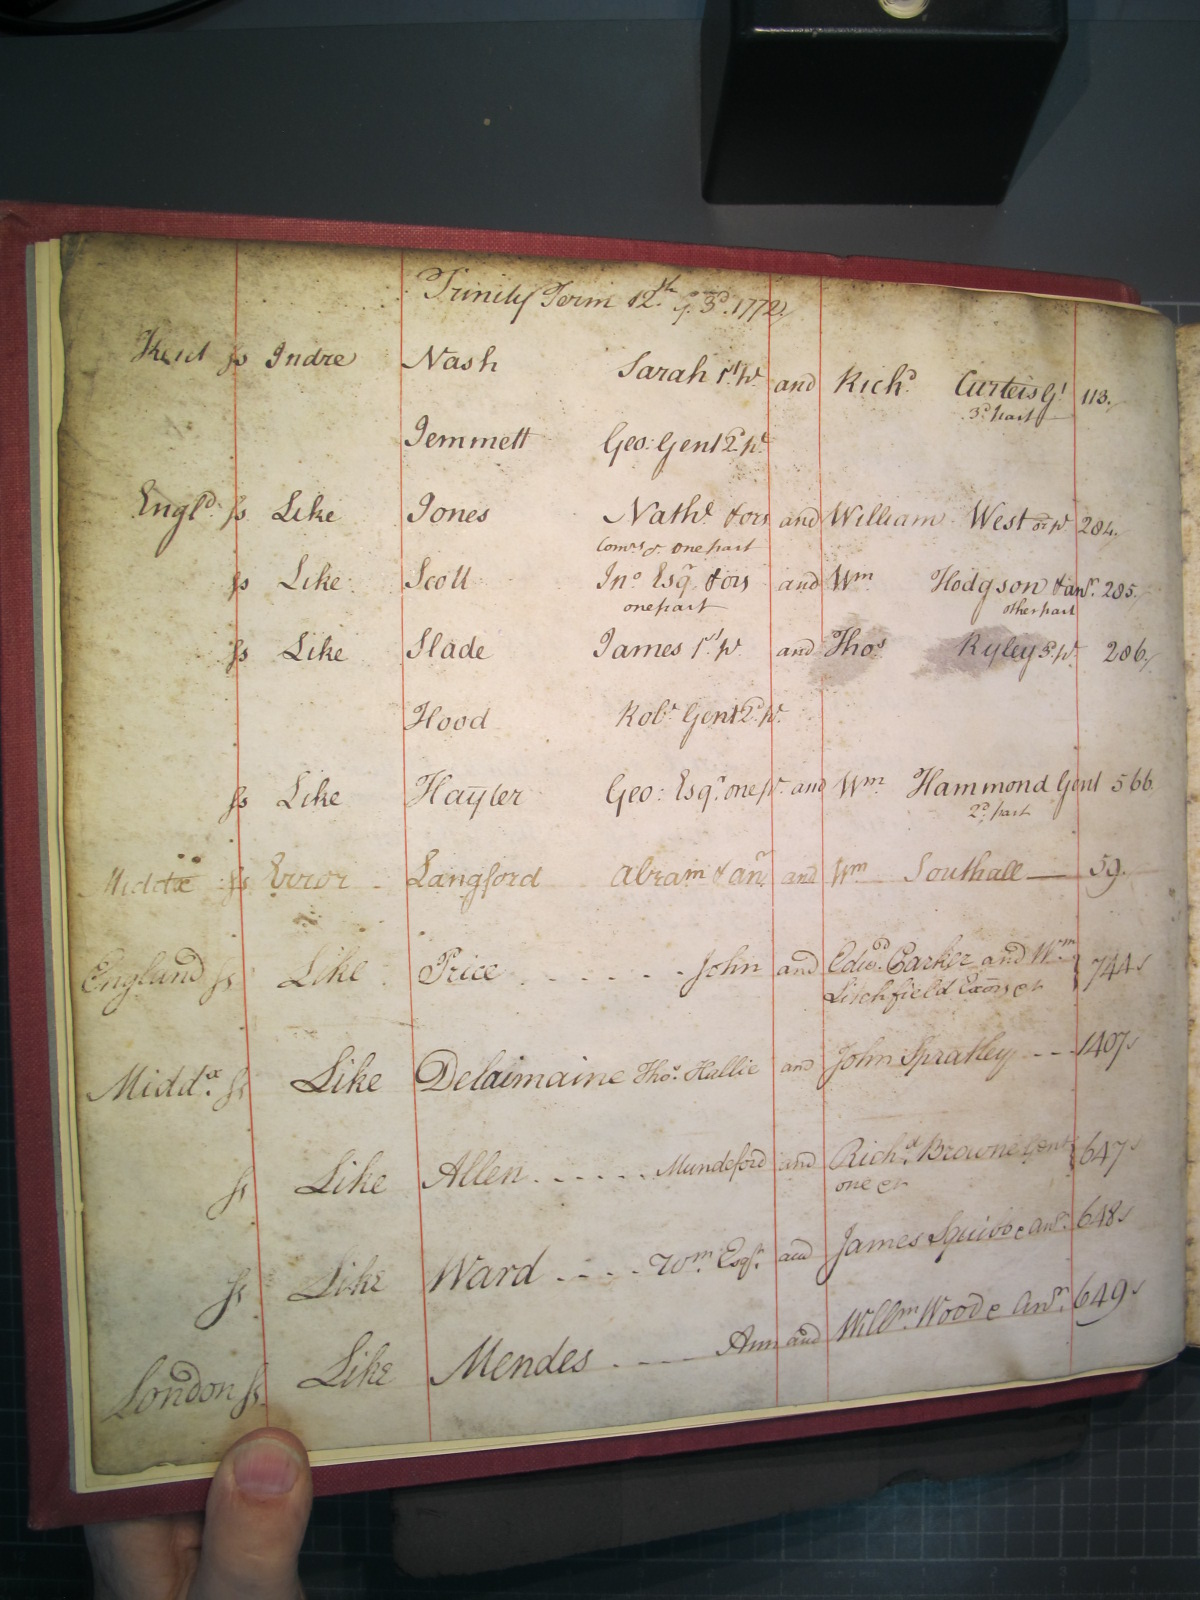 Trinity Term 12th G. 3d. 1772
Kent ss Indre Nash Sarah 1st pt and Richd Curteis Gt 113.
3d part
Jemmett Geo: Gent 2d pt
Engld ss Like Jones Nathl & ors and William West or pt 284.
Comrs &c one part
ss Like Scott Jno Esqr & ors and Wm Hodgson & anr. 285.
one part other part
ss Like Slade James 1st pt and Thos Ryley 3d pt 286
Hood Robt Gent 2d pt
ss Like Hayter Geo: Esqr. one pt and Wm Hammond Gent 566
2d part
Middx ss Error Langford Abram & anr and Wm Southall 59.
England ss Like Price John and Edwd. Barker and Wm 744
Litchfield Exors &c
Middx. ss Like Delaimaine Thos. Hallie and John Spratley 1407
ss Like Allen Mundeford and Richd. Browne Gent 647
one &c
ss Like Ward Wm. Esqr. and James Squibb & anr. 648
London ss Like Mendes Ann and Willm. Wood & anr. 649